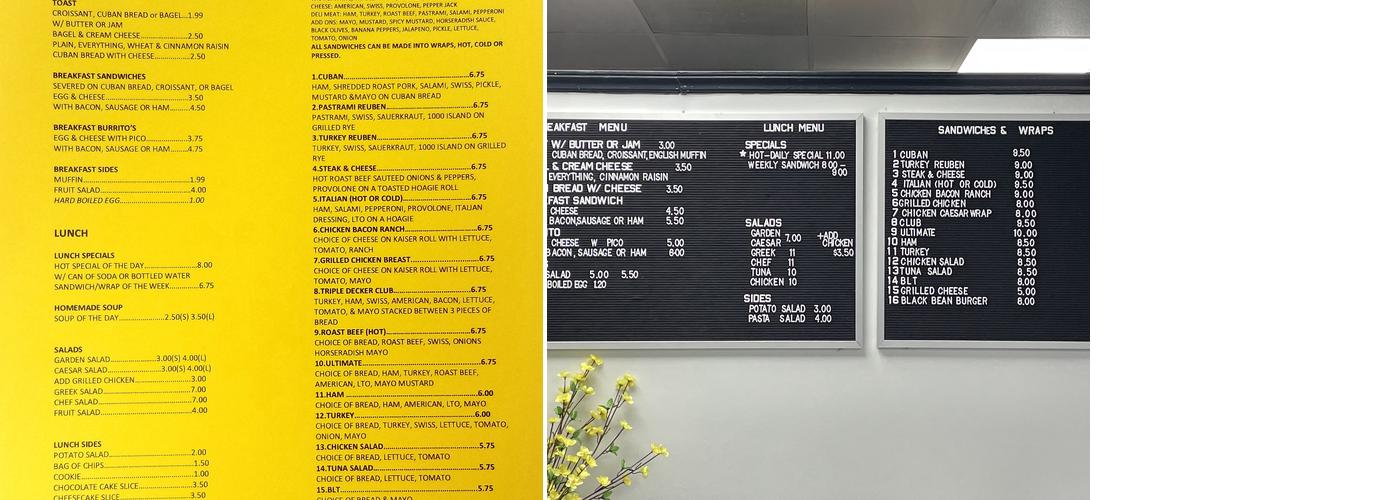 TOAST
CROISSANT, CUBAN BREAD or BAGEL...1.99
W/ BUTTER OR JAM
BAGEL & CREAM CHEESE...............2.50
PLAIN, EVERYTHING, WHEAT & CINNAMON RAISIN
CUBAN BREAD WITH CHEESE............2.50
BREAKFAST SANDWICHES
SEVERED ON CUBAN BREAD, CROISSANT, OR BAGEL
EGG & CHEESE..............................3.50
WITH BACON, SAUSAGE OR HAM.......4.50
BREAKFAST BURRITO'S
EGG & CHEESE WITH PICO................3.75
WITH BACON, SAUSAGE OR HAM......4.75
BREAKFAST SIDES
MUFFIN.......................................1.99
FRUIT SALAD................................4.00
HARD BOILED EGG.........................1.00
LUNCH
LUNCH SPECIALS
HOT SPECIAL OF THE DAY......................8.00
W/ CAN OF SODA OR BOTTLED WATER
SANDWICH/WRAP OF THE WEEK..............6.75
HOMEMADE SOUP
SOUP OF THE DAY..................2.50(S) 3.50(L)
SALADS
GARDEN SALAD..................3.00(S) 4.00(L)
CAESAR SALAD.....................3.00(S) 4.00(L)
ADD GRILLED CHICKEN......................3.00
GREEK SALAD...................................7.00
CHEF SALAD.....................................7.00
FRUIT SALAD....................................4.00
LUNCH SIDES
POTATO SALAD.................................2.00
BAG OF CHIPS...................................1.50
COOKIE............................................1.00
CHOCOLATE CAKE SLICE....................3.50
CHEESECAKE SLICE............................3.50
CHEESE: AMERICAN, SWISS, PROVOLONE, PEPPER JACK
DELI MEAT: HAM, TURKEY, ROAST BEEF, PASTRAMI, SALAMI, PEPPERONI
ADD ONS: MAYO, MUSTARD, SPICY MUSTARD, HORSERADISH SAUCE,
BLACK OLIVES, BANANA PEPPERS, JALAPENO, PICKLE, LETTUCE,
TOMATO, ONION
ALL SANDWICHES CAN BE MADE INTO WRAPS, HOT, COLD OR
PRESSED.
1.CUBAN..................................................6.75
HAM, SHREDDED ROAST PORK, SALAMI, SWISS, PICKLE,
MUSTARD &MAYO ON CUBAN BREAD
2.PASTRAMI REUBEN....................................6.75
PASTRAMI, SWISS, SAUERKRAUT, 1000 ISLAND ON
GRILLED RYE
3.TURKEY REUBEN.......................................6.75
TURKEY, SWISS, SAUERKRAUT, 1000 ISLAND ON GRILLED
RYE
4.STEAK & CHEESE.......................................6.75
HOT ROAST BEEF SAUTEED ONIONS & PEPPERS,
PROVOLONE ON A TOASTED HOAGIE ROLL
5.ITALIAN (HOT OR COLD)..............................6.75
HAM, SALAMI, PEPPERONI, PROVOLONE, ITALIAN
DRESSING, LTO ON A HOAGIE
6.CHICKEN BACON RANCH..............................6.75
CHOICE OF CHEESE ON KAISER ROLL WITH LETTUCE,
TOMATO, RANCH
7.GRILLED CHICKEN BREAST............................6.75
CHOICE OF CHEESE ON KAISER ROLL WITH LETTUCE,
TOMATO, MAYO
8.TRIPLE DECKER CLUB..................................6.75
TURKEY, HAM, SWISS, AMERICAN, BACON, LETTUCE,
TOMATO, & MAYO STACKED BETWEEN 3 PIECES OF
BREAD
9.ROAST BEEF (HOT).....................................6.75
CHOICE OF BREAD, ROAST BEEF, SWISS, ONIONS
HORSERADISH MAYO
10.ULTIMATE...............................................6.75
CHOICE OF BREAD, HAM, TURKEY, ROAST BEEF,
AMERICAN, LTO, MAYO MUSTARD
11.HAM .....................................................6.00
CHOICE OF BREAD, HAM, AMERICAN, LTO, MAYO
12.TURKEY..................................................6.00
CHOICE OF BREAD, TURKEY, SWISS, LETTUCE, TOMATO,
ONION, MAYO
13.CHICKEN SALAD........................................5.75
CHOICE OF BREAD, LETTUCE, TOMATO
14.TUNA SALAD............................................5.75
CHOICE OF BREAD, LETTUCE, TOMATO
15.BLT........................................................5.75
CHOICE OF BREAD & MAYO
EAKFAST MENU
W/ BUTTER OR JAM 3.00
CUBAN BREAD, CROISSANT, ENGLISH MUFFIN
& CREAM CHEESE 3.50
EVERYTHING, CINNAMON RAISIN
BREAD W/ CHEESE 3.50
FAST SANDWICH
CHEESE 4.50
BACON,SAUSAGE OR HAM 5.50
TO
CHEESE W PICO 5.00
BACON, SAUSAGE OR HAM 6.00
SALAD 5.00 5.50
BOILED EGG 1.20
LUNCH MENU
SPECIALS
★ HOT-DAILY SPECIAL 11.00
WEEKLY SANDWICH 8.00 –
9.00
SALADS
GARDEN 7.00 +ADD
CAESAR CHICKEN
GREEK 11 $3.50
CHEF 11
TUNA 10
CHICKEN 10
SIDES
POTATO SALAD 3.00
PASTA SALAD 4.00
SANDWICHES & WRAPS
1 CUBAN 9.50
2 TURKEY REUBEN 9.00
3 STEAK & CHEESE 9.00
4 ITALIAN (HOT OR COLD) 9.50
5 CHICKEN BACON RANCH 9.00
6 GRILLED CHICKEN 8.00
7 CHICKEN CAESAR WRAP 8.00
8 CLUB 9.50
9 ULTIMATE 10.00
10 HAM 8.50
11 TURKEY 8.50
12 CHICKEN SALAD 8.50
13 TUNA SALAD 8.50
14 BLT 8.00
15 GRILLED CHEESE 5.00
16 BLACK BEAN BURGER 8.00